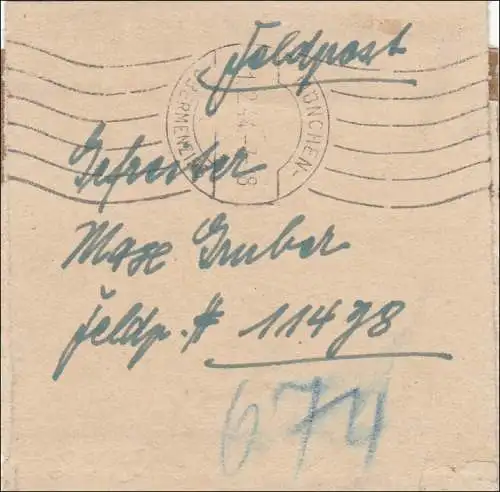 Feldpost
MÜNCHEN-
OBERMENZING
Gefreiter
Max Gruber
Feldp. # 11498
674